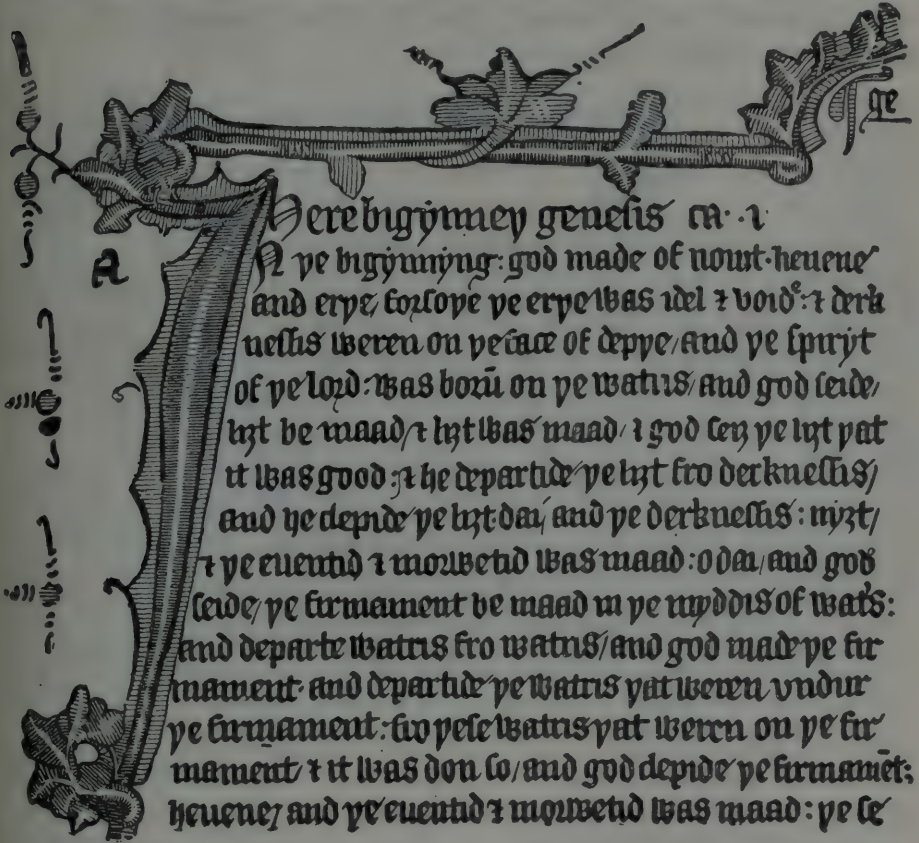 ge
Here bigynneþ genesis ca · i
a
In þe bigynnyng : god made of nouȝt · heuene
and erþe, forsoþe þe erþe was idel ⁊ voide : ⁊ derk
nessis weren on þe face of depþe / and þe spiryt
of þe lord : was borū on þe watris / and god seide /
liȝt be maad / ⁊ liȝt was maad / ⁊ god seiȝ þe liȝt þat
it was good : ⁊ he departide þe liȝt fro derknessis /
and he clepide þe liȝt · dai / and þe derknessis : nyȝt /
⁊ þe euentid ⁊ morwetid was maad : o dai / and god
seide / þe firmament be maad in þe myddis of wat's :
and departe watris fro watris / and god made þe fir
mament · and departide þe watris þat weren vndur
þe firmament : fro þese watris þat weren on þe fir
mament / ⁊ it was don so / and god clepide þe firmamēt :
heuene / and þe euentid ⁊ morwetid was maad : þe se